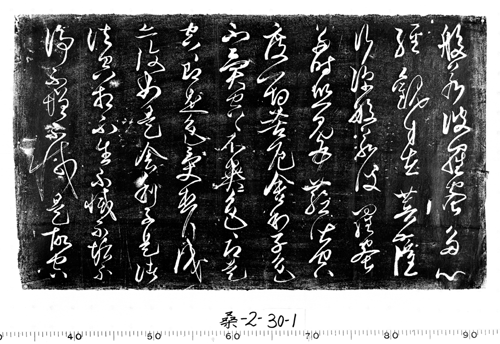 般若波羅蜜多心
經觀自在菩薩
行深般若波羅蜜
多時照見五蘊皆空
度一切苦厄舍利子色
不異空空不異色色即是
空空即是色受想行識
亦復如是舍利子是諸
法空相不生不滅不垢不
淨不增不減是故空
桑-2-30-1
50 60 70 80 90